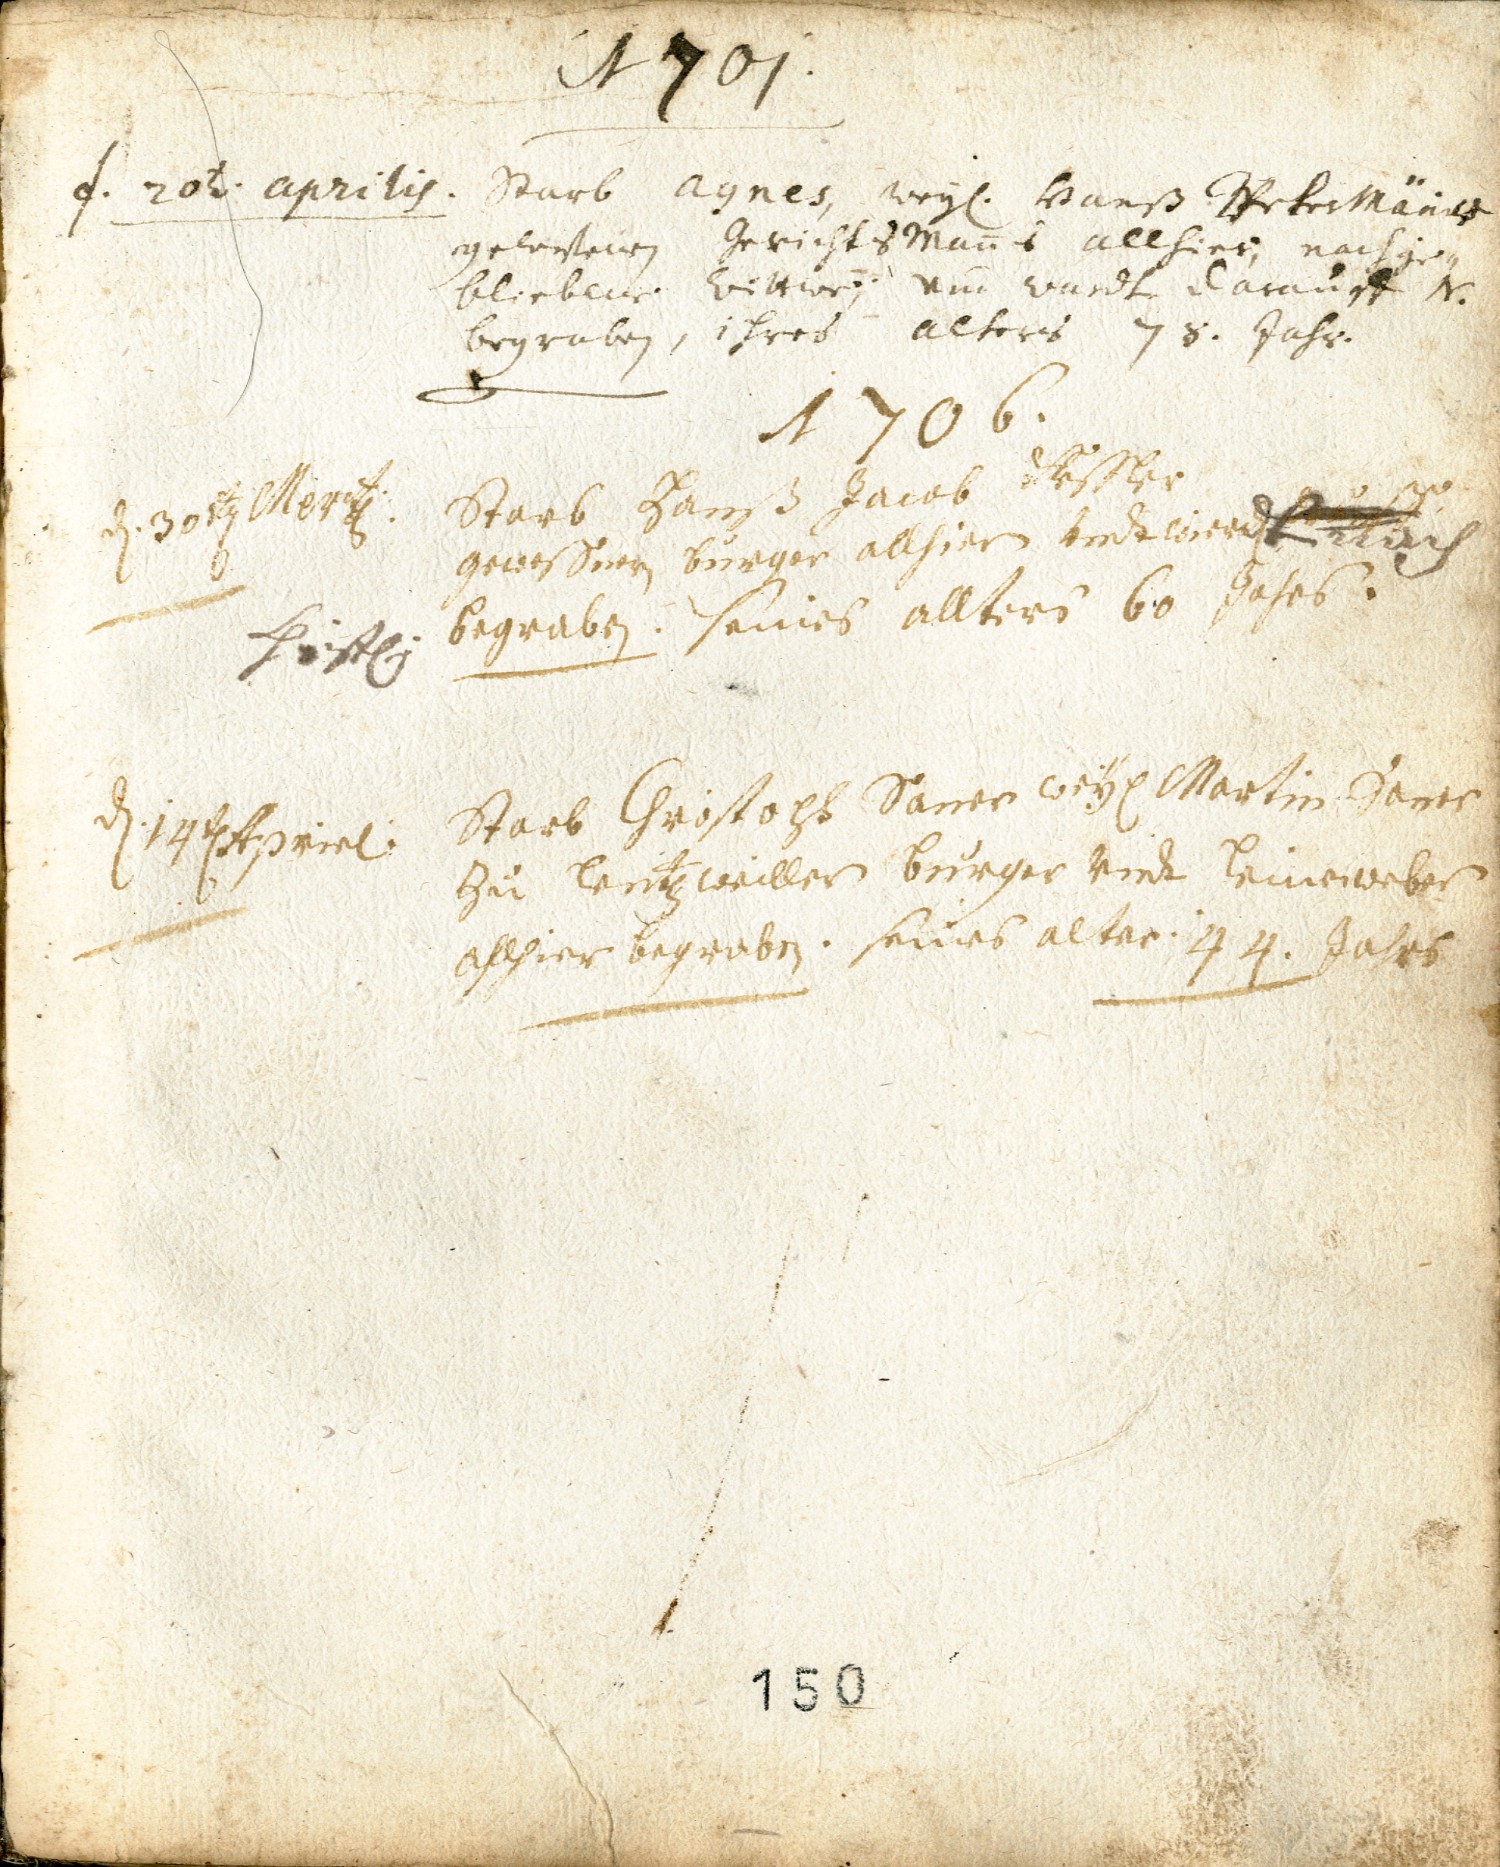 1701.
d. 20t. aprilis. Starb Agnes, weyl. Hanß
gewesenen Gerichts Manns allhier, nachge-
bliebene Wittwe; und wardt darauff
begraben, ihres alters 78. Jahr.
1706.
d. 30t Mertz. Starb Hanß Jacob
gewessner burger allhier undt wierdt nach
Christlich begraben. seines allters 60 Jahrs.
d. 14t Apriel. Starb Christoph Saner weyl Martin Saner
zu burger undt leineweber
allhier begraben. seines alter. 44. Jahrs
150